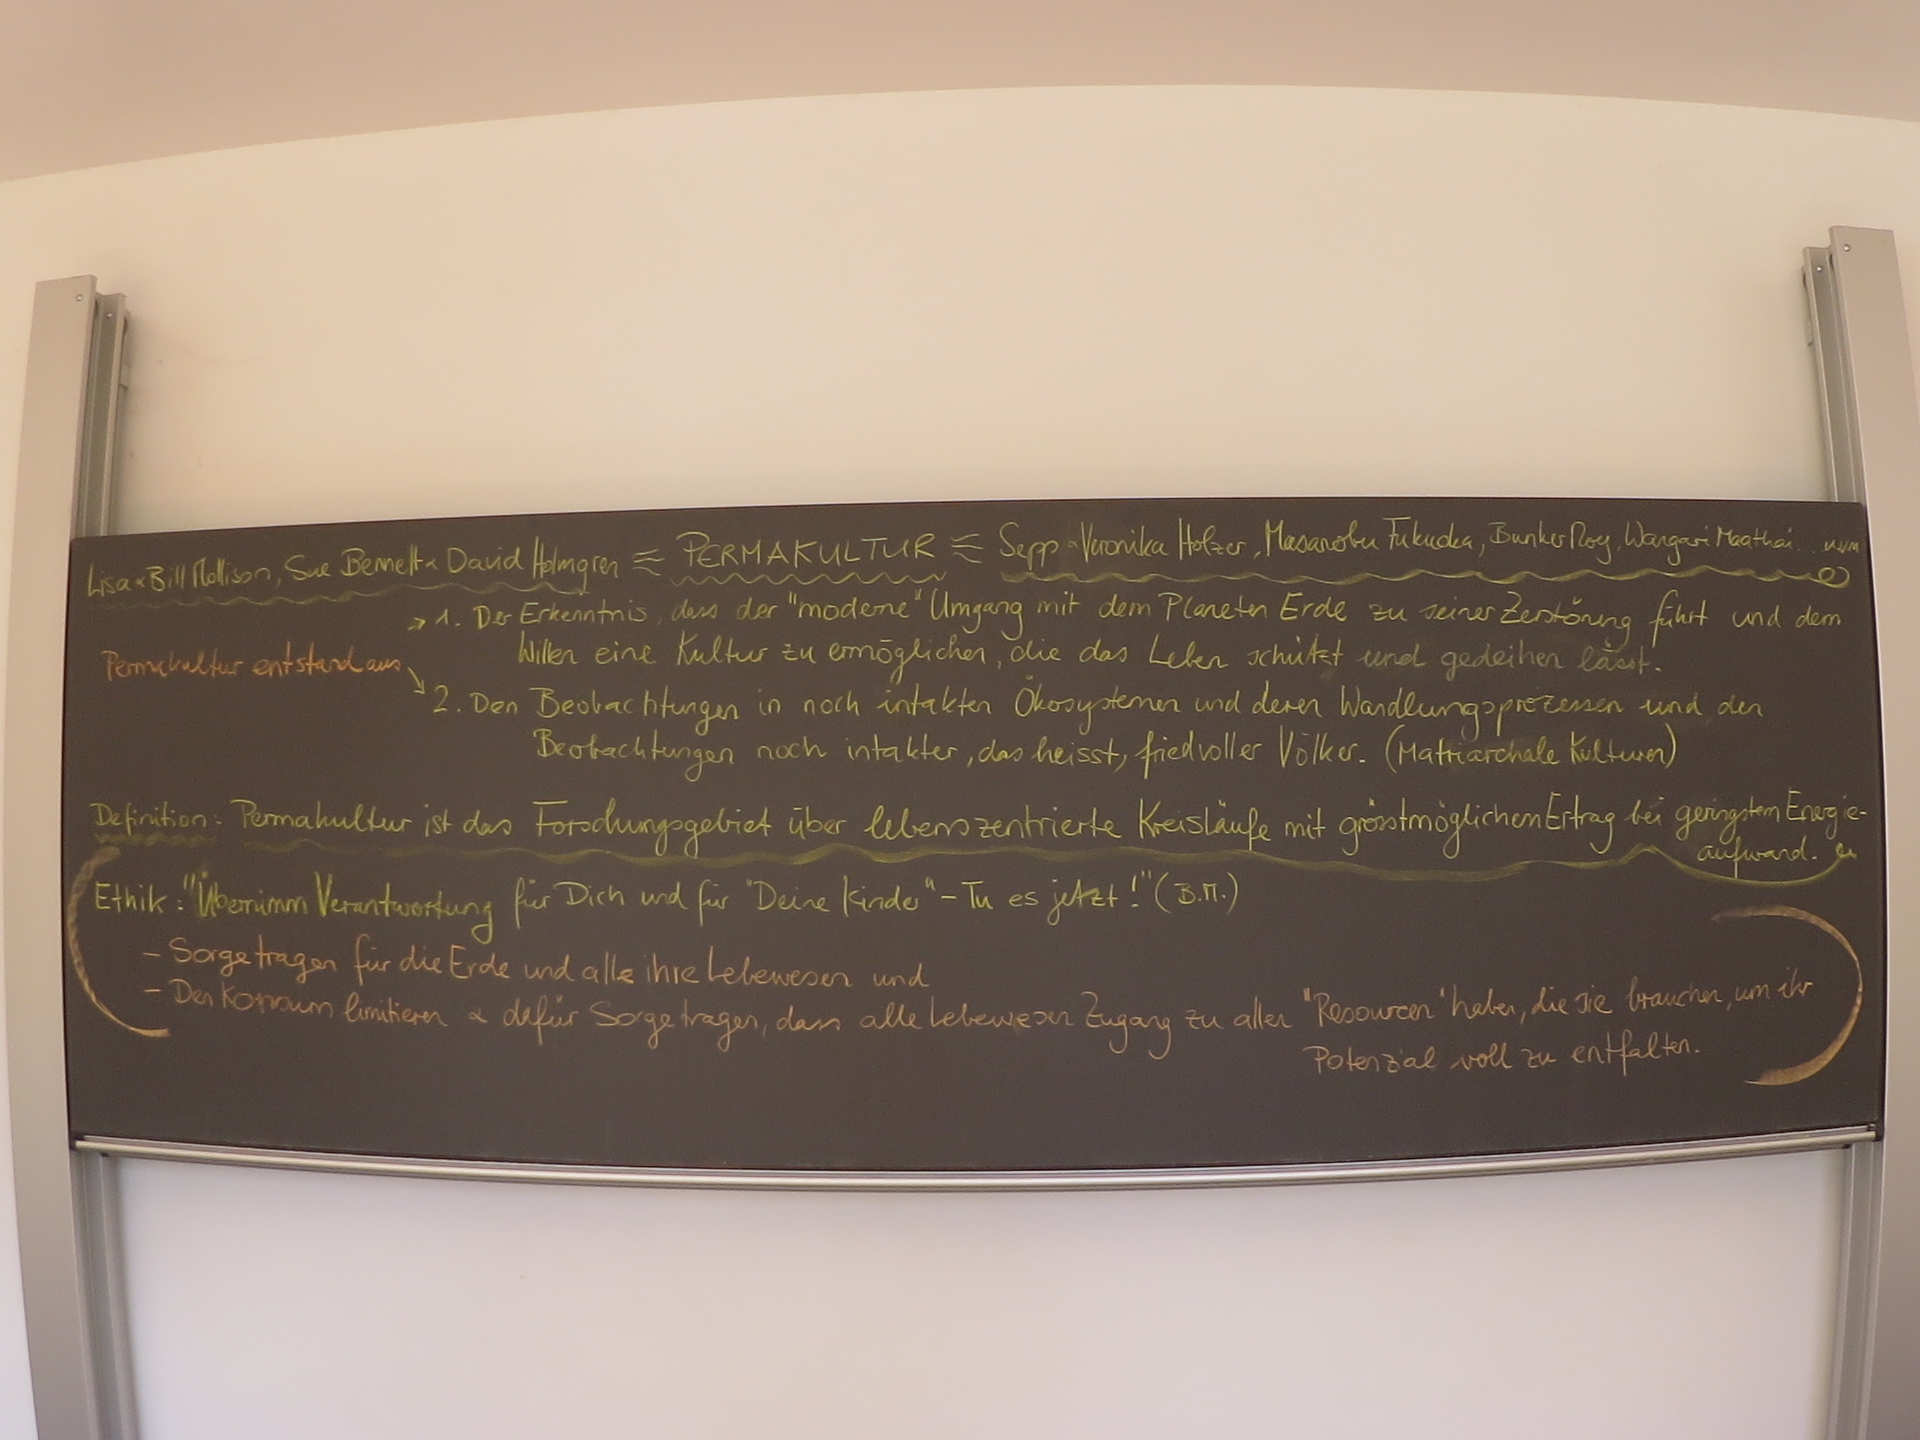 Lisa & Bill Mollison, Sue Bennett & David Holmgren ≡ PERMAKULTUR ≡ Sepp & Veronika Holzer, Masanobu Fukuoka, Bunker Roy, Wangari Maathai... uvm
→ 1. Der Erkenntnis, dass der "moderne" Umgang mit dem Planeten Erde zu seiner Zerstörung führt und dem
Willen eine Kultur zu ermöglichen, die das Leben schützt und gedeihen lässt.
Permakultur entstand aus
↘ 2. Den Beobachtungen in noch intakten Ökosystemen und deren Wandlungsprozessen und den
Beobachtungen noch intakter, das heisst, friedvoller Völker. (Matriarchale Kulturen)
Definition: Permakultur ist das Forschungsgebiet über lebenszentrierte Kreisläufe mit grösstmöglichem Ertrag bei geringstem Energie-
aufwand.
Ethik: "Übernimm Verantwortung für Dich und für "Deine Kinder" – Tu es jetzt!" (B.M.)
– Sorge tragen für die Erde und alle ihre Lebewesen und
– Den Konsum limitieren & dafür Sorge tragen, dass alle Lebewesen Zugang zu allen "Resourcen" haben, die sie brauchen, um ihr
Potenzial voll zu entfalten.